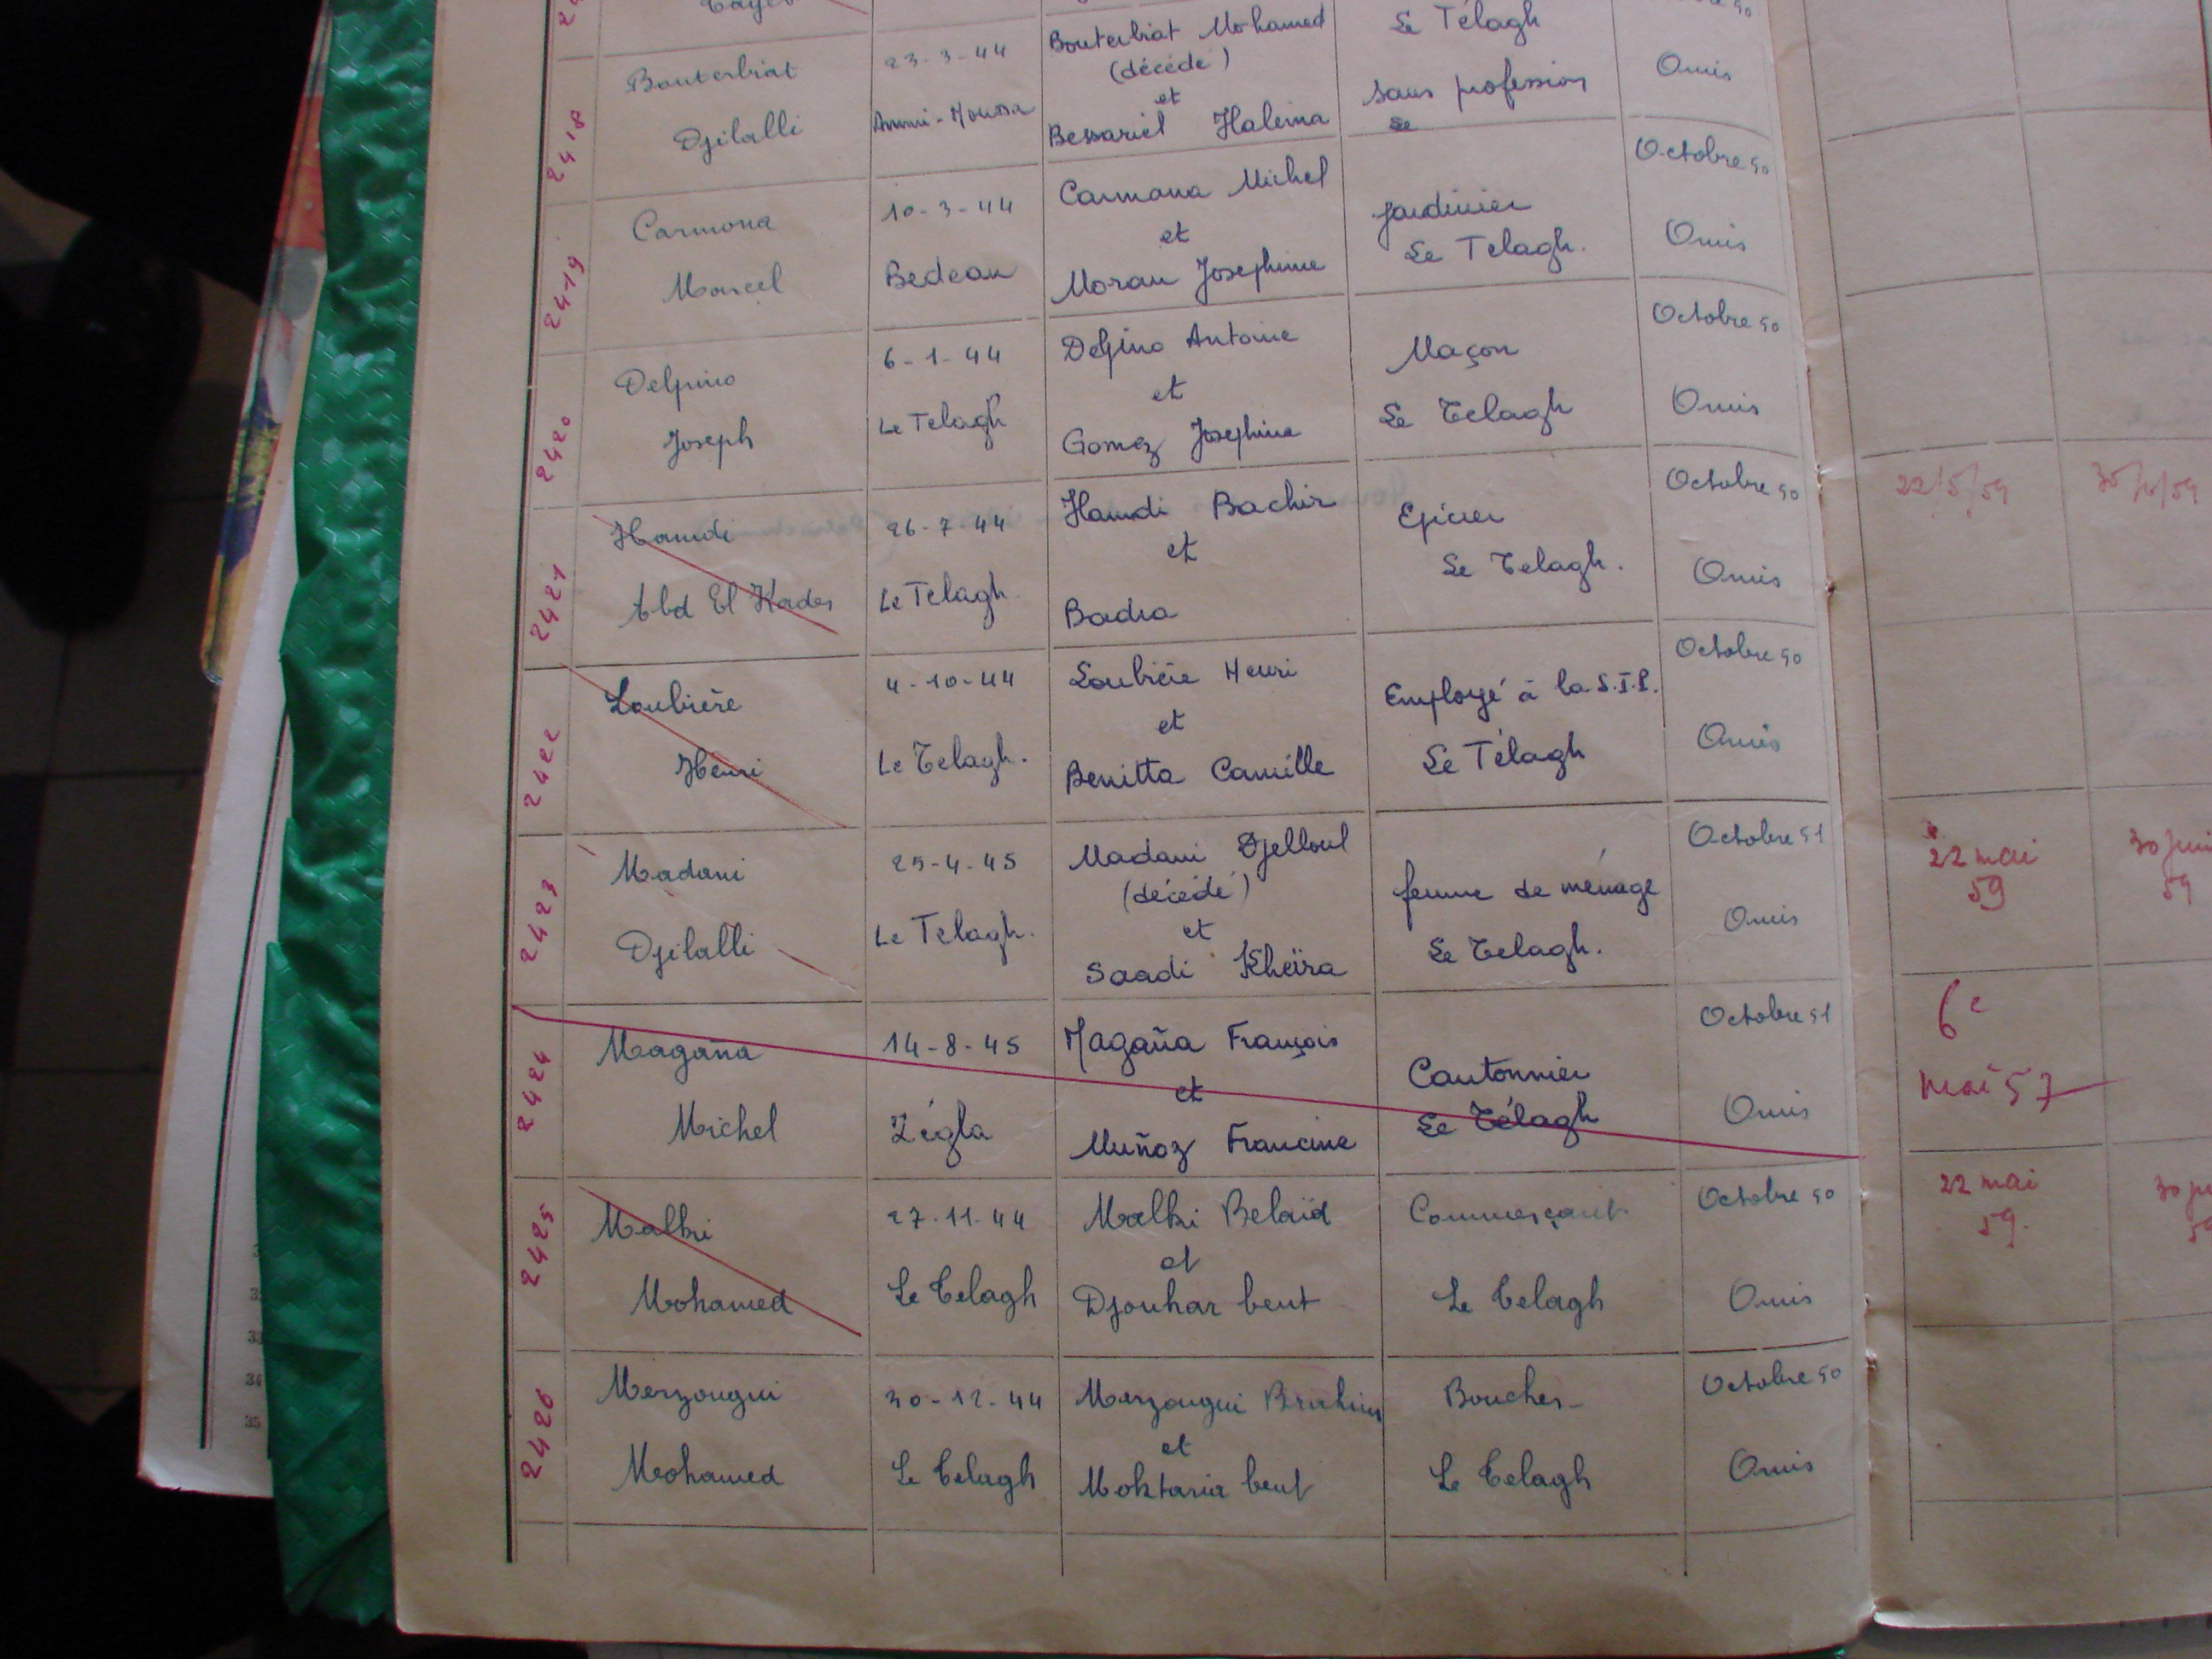 Le Télagh
2418
Bouterbiat
Djilalli
23-3-44
Ammi-Moussa
Bouterbiat Mohamed
(décédé)
et
Bessariet Halima
sans profession
Le
Octobre 50
Omis
2419
Carmona
Marcel
10-3-44
Bedeau
Carmona Michel
et
Moran Josephine
Jardinier
Le Telagh.
Octobre 50
Omis
2420
Delpino
Joseph
6-1-44
Le Telagh
Delpino Antoine
et
Gomez Josephine
Maçon
Le Telagh
Octobre 50
Omis
2421
Hamdi
Abd El Kader
26-7-44
Le Telagh.
Hamdi Bachir
et
Badra
Epicier
Le Telagh.
Octobre 50
Omis
22/5/59
2422
Loubière
Henri
4-10-44
Le Telagh.
Loubière Henri
et
Benitta Camille
Employé à la S.I.P.
Le Télagh
Octobre 50
Omis
2423
Madani
Djilalli
25-4-45
Le Telagh.
Madani Djelloul
(décédé)
et
Saadi Kheïra
femme de ménage
Le Telagh.
Octobre 51
Omis
22 mai
59
30 juin
59
2424
Magaña
Michel
14-8-45
Zégla
Magaña François
et
Muñoz Francine
Cantonnier
Le Télagh
Octobre 51
Omis
6e
mai 57
2425
Malki
Mohamed
27-11-44
Le Telagh
Malki Belaïd
et
Djouhar bent
Commerçant
Le Telagh
Octobre 50
Omis
22 mai
59.
2426
Merzougui
Mohamed
30-12-44
Le Telagh
Merzougui Brahim
et
Moktaria bent
Boucher
Le Telagh
Octobre 50
Omis